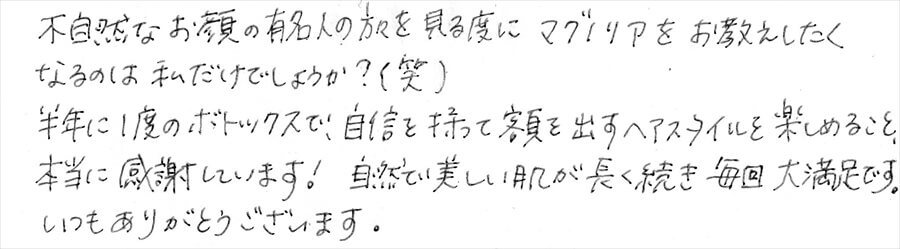 不自然なお顔の有名人の方々を見る度に マグノリアをお教えしたく
なるのは私だけでしょうか?(笑)
半年に1度のボトックスで、自信を持って額を出すヘアスタイルを楽しめること、
本当に感謝しています! 自然で美しい肌が長く続き毎回大満足です。
いつもありがとうございます。